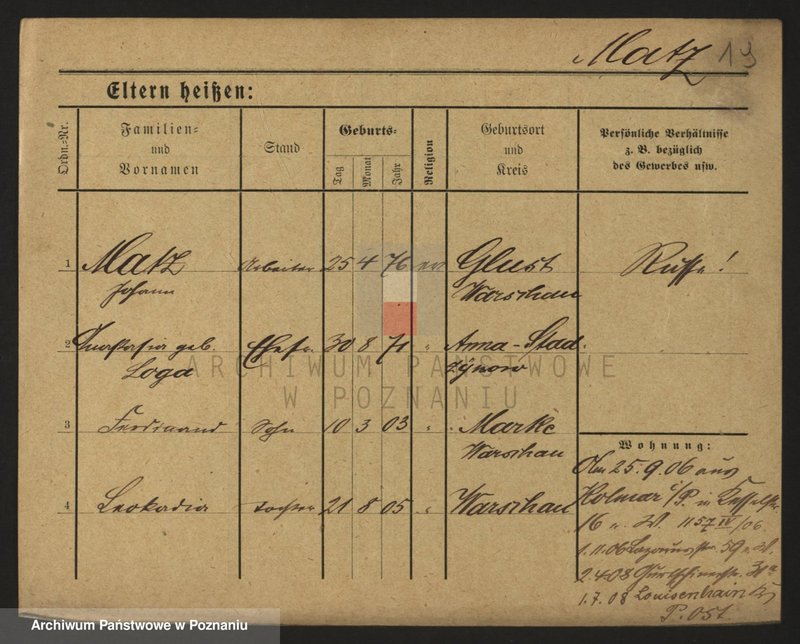 Matz 19
Eltern heißen:
Ordn.-Nr.
Familien-
und
Vornamen
Stand
Geburts-
Tag
Monat
Jahr
Religion
Geburtsort
und
Kreis
Persönliche Verhältnisse
z. B. bezüglich
des Gewerbes usw.
1 Matz Arbeiter 25 4 76 ev Glust Russe!
Johann Warschau
2 geb. Ehefr. 30 8 71 " Anna-Stad.
Loga
3 Ferdinand Sohn 10 3 03 " Marke
Warschau
4 Leokadia Tochter 21 8 05 " Warschau
Wohnung:
25.9.06 aus
Kolmar i/P. in
16 1157 IV/06
1.11.06 59
2.4.08
1.7.08 Louisenhain
P. Ost
ARCHIWUM PAŃSTWOWE
W POZNANIU
Archiwum Państwowe w Poznaniu